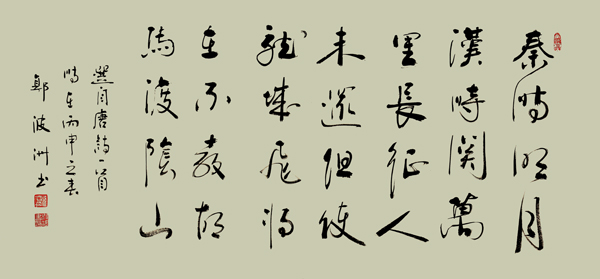 秦時明月
漢時関萬
里長征人
未還但使
龍城飛將
在不教胡
馬渡陰山
選自唐詩一首
時在丙申之春
鄭波洲书